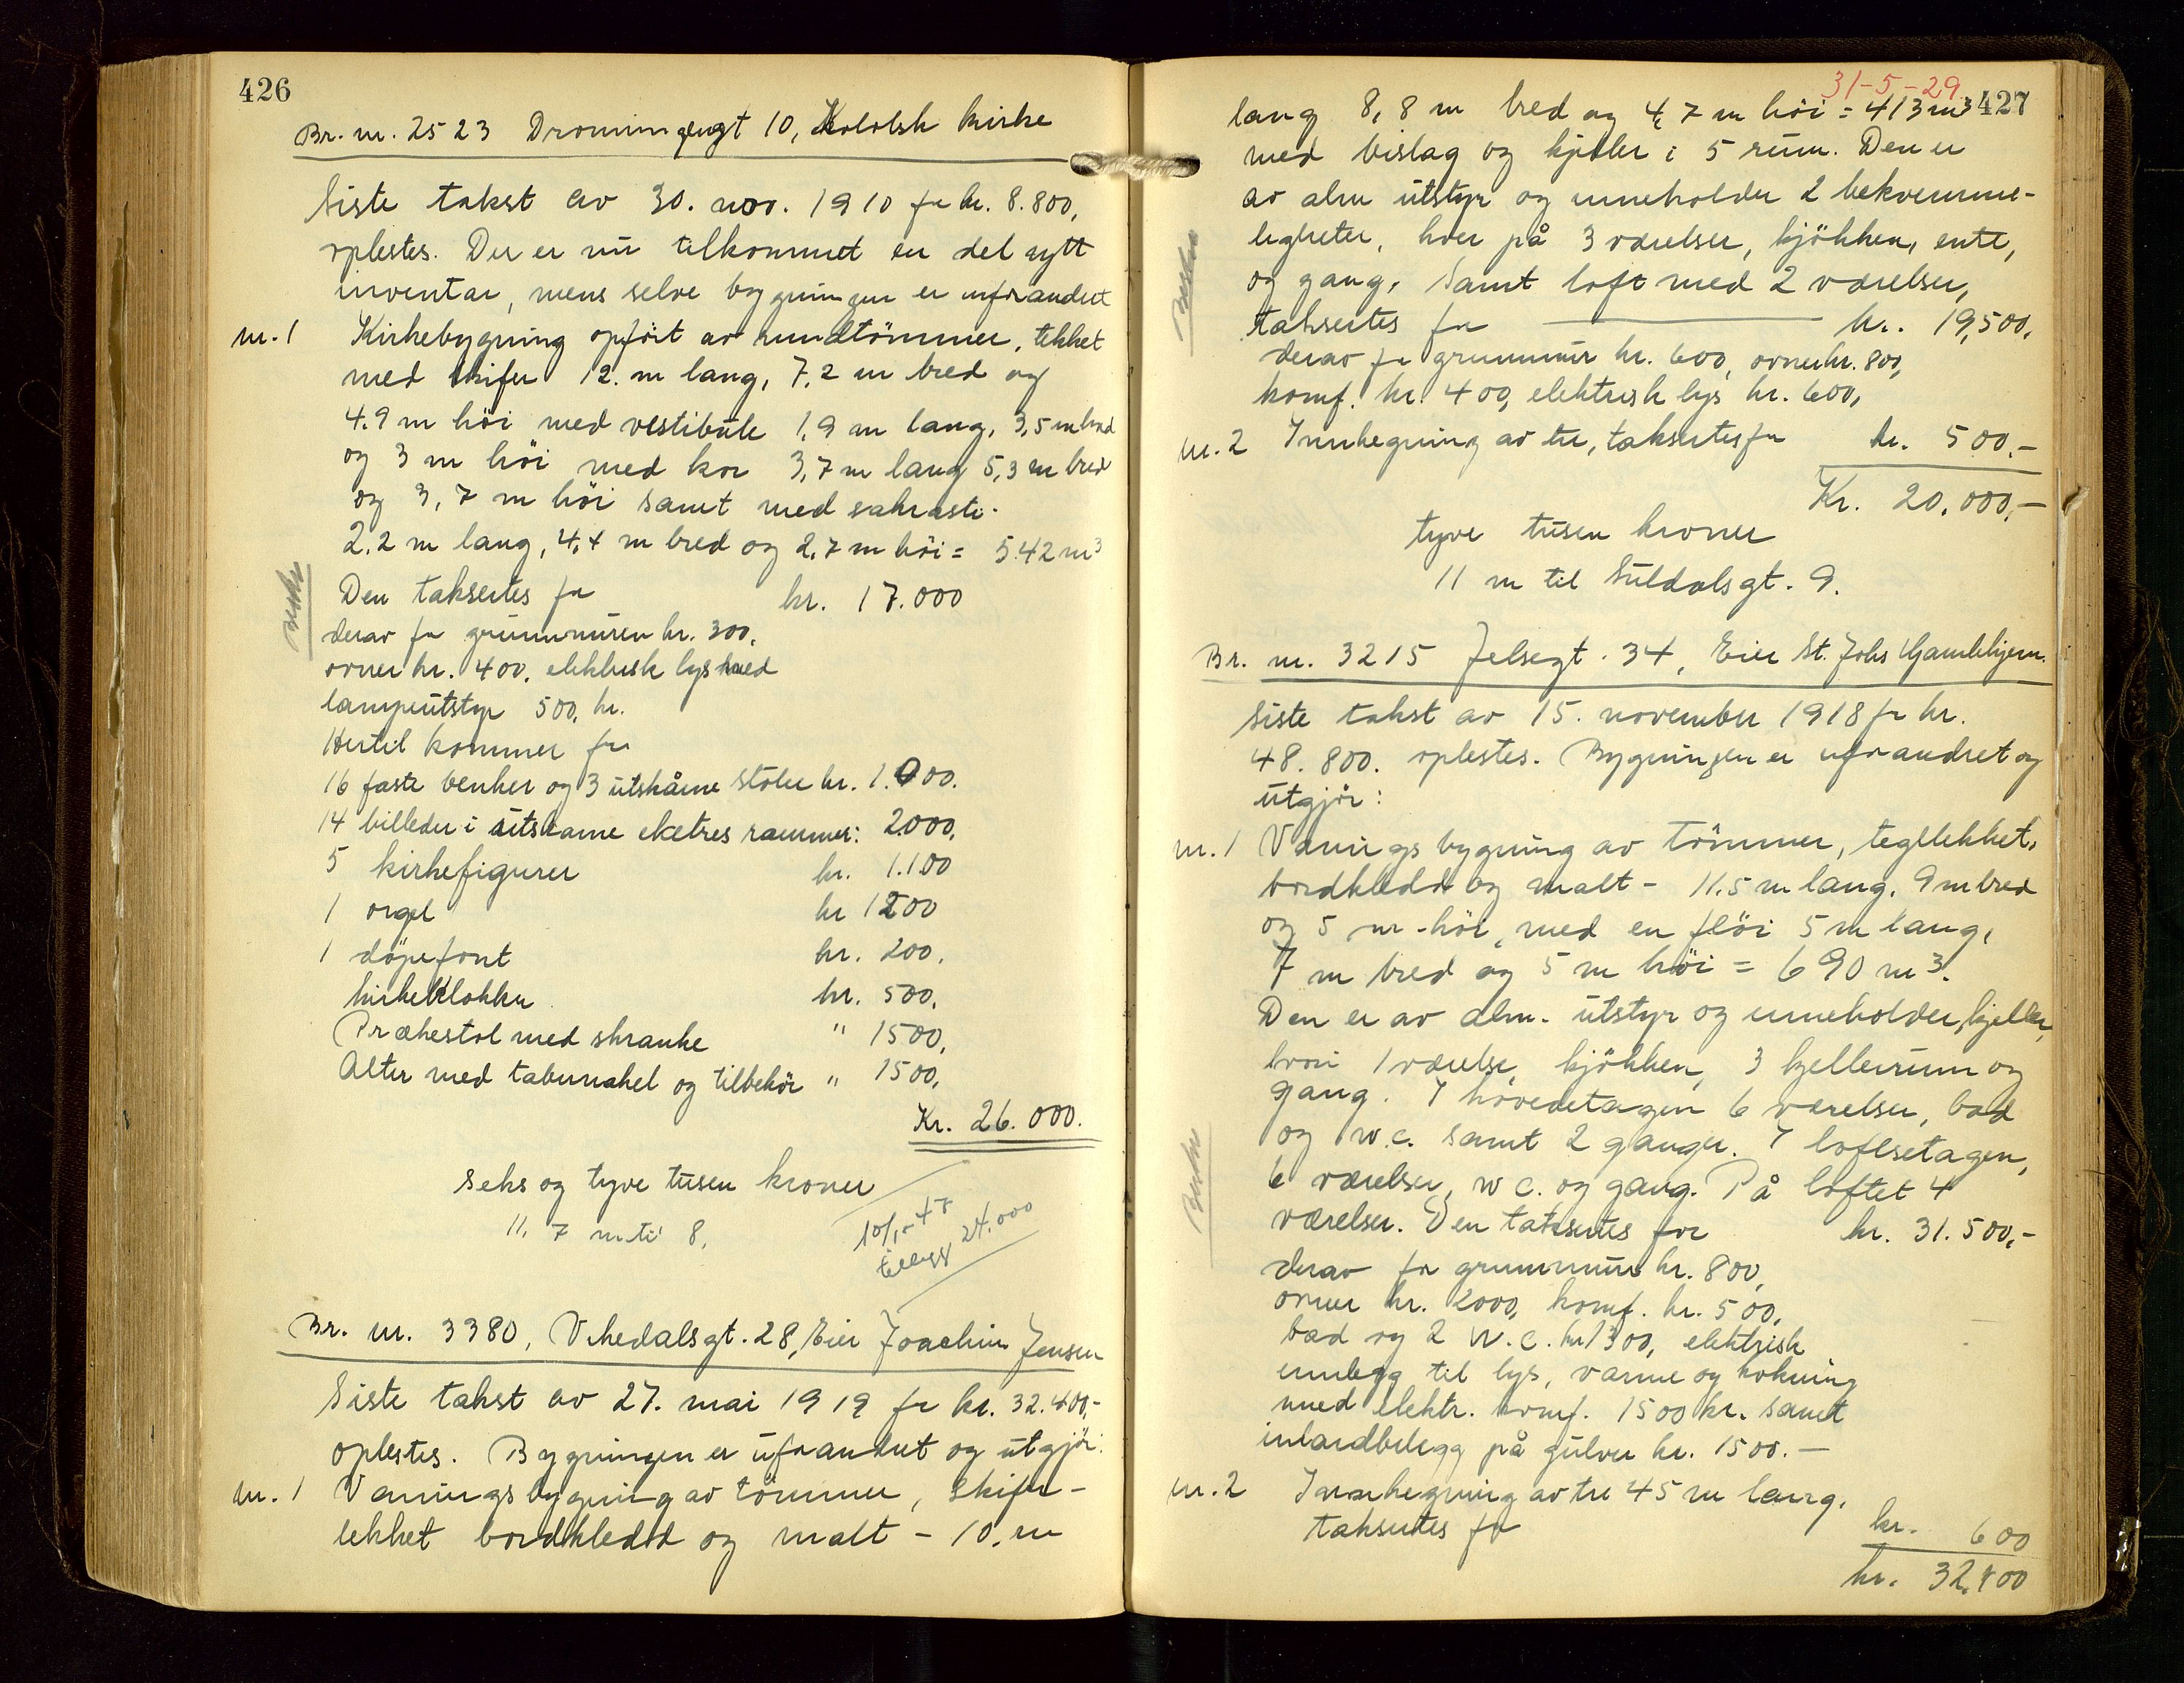 426
Br. nr. 2523 Dronningensgt 10, Katolsk kirke
Siste takst av 30. nov. 1910 for kr. 8.800,
oplestes. Der er nu tilkommet en del nytt
inventar, mens selve bygningen er uforandret
nr. 1 Kirkebygning opført av rundtömmer, tekket
med skifer 12. m lang, 7,2 m bred og
4.9 m höi med vestibule 1,9 m lang, 3,5 m bred
og 3 m höi med kor 3,7 m lang 5,3 m bred
og 3,7 m höi samt med sakristi
2.2 m lang, 4,4 m bred og 2,7 m höi = 542 m³
Den takseres for kr. 17.000
derav for grunnmuren kr. 300,
ovner kr. 400, elektrisk lys med
lampeutstyr 500, kr.
Hertil kommer for
16 faste benker og 3 utskårne stoler kr. 1.000.
14 billeder i utskarne eketres rammer: 2000,
5 kirkefigurer kr. 1.100
1 orgel kr 1200
1 döpefont kr. 200.
kirkeklokke kr. 500,
Prækestol med skranke " 1500,
Alter med tabernakel og tilbehör " 1500,
Kr. 26.000.
seks og tyve tusen kroner
11,7 m til 8.
tillegg 24.000
Br. nr. 3380, Vikedalsgt. 28, Eier Joachim Jensen
Siste takst av 27. mai 1919 for kr. 32.400,-
oplestes. Bygningen er uforandret og utgjör:
nr. 1 Vaaningsbygning av tömmer, skifer-
tekket bordkledd og malt - 10. m
31-5-29. 427
lang 8,8 m bred og 4,7 m höi = 413 m³
med bislag og kjeller i 5 rum. Den er
av alm utstyr og inneholder 2 bekvemme-
ligheter, hver på 3 værelser, kjökken, entre,
og gang. Samt loft med 2 værelser,
takseres for kr. 19,500,
derav for grunnmur kr. 600, ovner kr. 800,
komf. kr. 400, elektrisk lys kr. 600,
nr. 2 Innhegning av tre, takseres for kr. 500.-
Kr. 20.000,-
tyve tusen kroner
11 m til Suldalsgt. 9.
Br. nr. 3215 Jelsegt. 34, Eier St. Johs Gamlehjem.
Siste takst av 15. november 1918 for kr.
48.800. oplestes. Bygningen er uforandret og
utgjör:
nr. 1 Vaningsbygning av tömmer, tegltekket,
bordkledd og malt - 11.5 m lang. 9 m bred
og 5 m höi, med en flöi 5 m lang,
7 m bred og 5 m höi = 690 m³.
Den er av alm. utstyr og inneholder, kjeller,
hvori 1 værelse, kjökken, 3 kjellerrum og
gang. I hovedetagen 6 værelser, bad
og w.c. samt 2 ganger. I loftsetagen,
6 værelser, w c. og gang. På loftet 4
værelser. Den takseres for kr. 31.500,-
derav for grunnmur kr. 800,
ovner kr. 2000, komf. kr. 500,
bad og 2 w.c. kr 1300, elektrisk
innlegg til lys, varme og kokning
med elektr. komf. 1500 kr. samt
inlaidbelegg på gulver kr. 1500.-
nr. 2 Innhegning av tre 45 m lang.
takseres for kr. 600
kr. 32.100